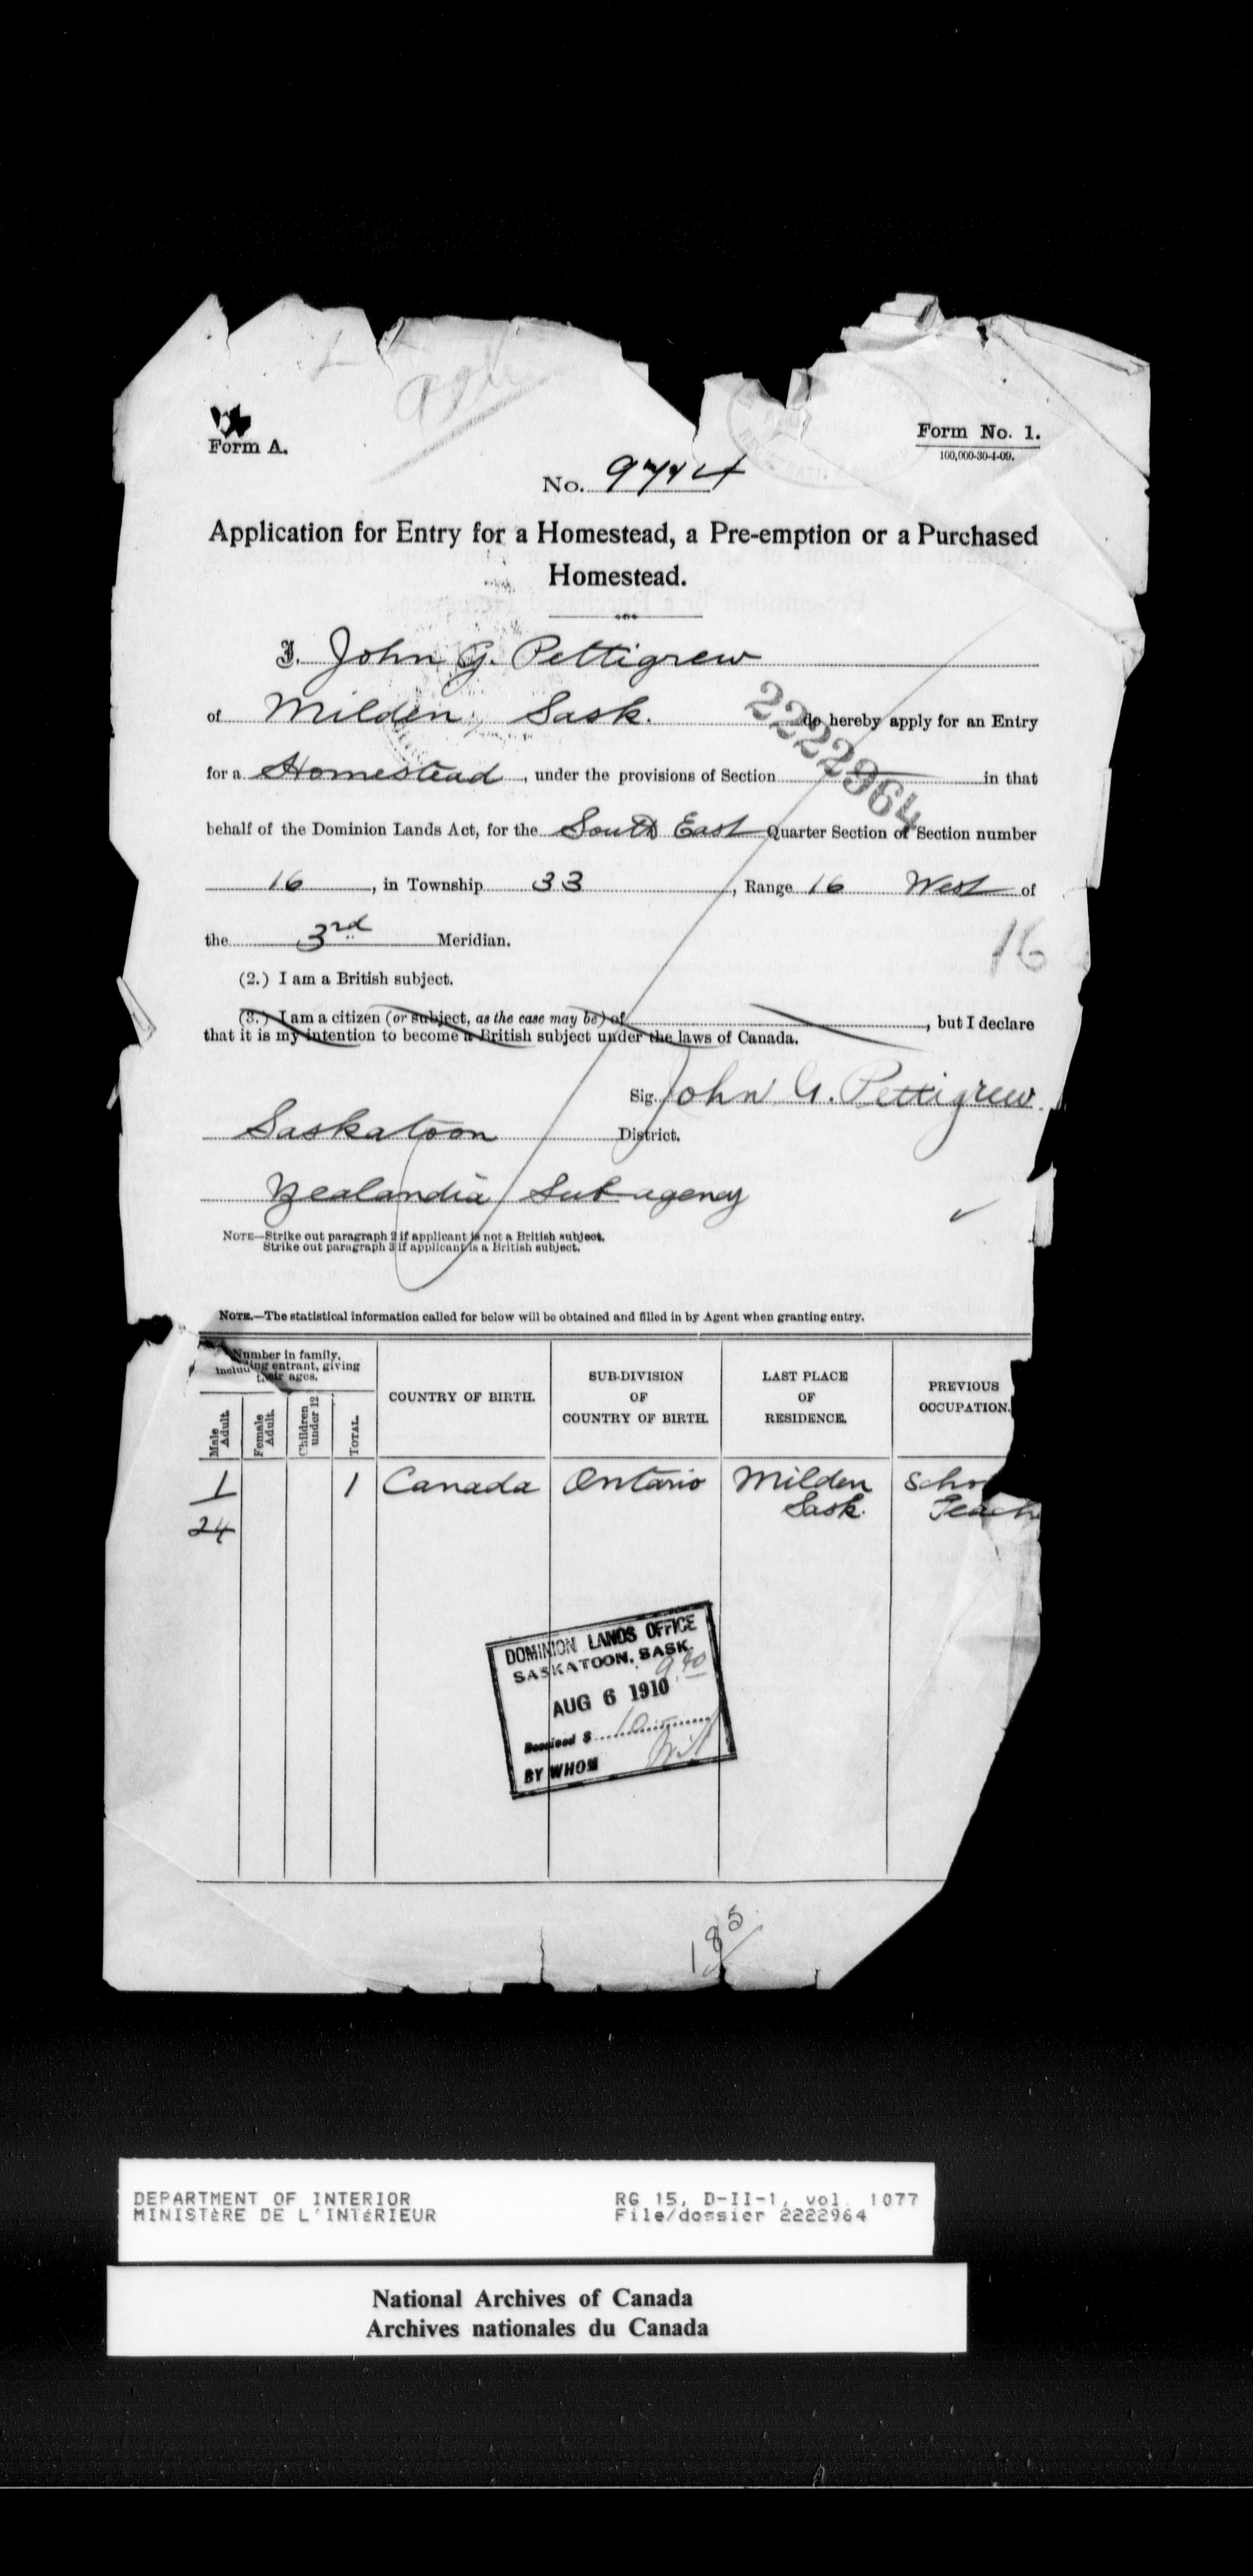 Form A.
Form No. 1.
100,000-30-4-09.
No. 9744
Application for Entry for a Homestead, a Pre-emption or a Purchased
Homestead.
I, John G. Pettigrew
of Milden, Sask. do hereby apply for an Entry
2222964
for a Homestead, under the provisions of Section in that
behalf of the Dominion Lands Act, for the South East Quarter Section of Section number
16, in Township 33, Range 16 West of
the 3rd Meridian.
16
(2.) I am a British subject.
(3.) I am a citizen (or subject, as the case may be) of, but I declare
that it is my intention to become a British subject under the laws of Canada.
Sig. John G. Pettigrew
Saskatoon District.
Zealandia Sub-agency
NOTE—Strike out paragraph 2 if applicant is not a British subject.
Strike out paragraph 3 if applicant is a British subject.
NOTE.—The statistical information called for below will be obtained and filled in by Agent when granting entry.
Number in family, including entrant, giving their ages.
COUNTRY OF BIRTH.
SUB-DIVISION OF COUNTRY OF BIRTH.
LAST PLACE OF RESIDENCE.
PREVIOUS OCCUPATION.
Male Adult.
Female Adult.
Children under 12
TOTAL.
1 1 Canada Ontario Milden Scho
24 Sask. Teach
DOMINION LANDS OFFICE
SASKATOON, SASK.
9.40
AUG 6 1910
Received $ 10
BY WHOM
185
DEPARTMENT OF INTERIOR
MINISTÈRE DE L'INTÉRIEUR
RG 15, D-II-1, vol. 1077
File/dossier 2222964
National Archives of Canada
Archives nationales du Canada